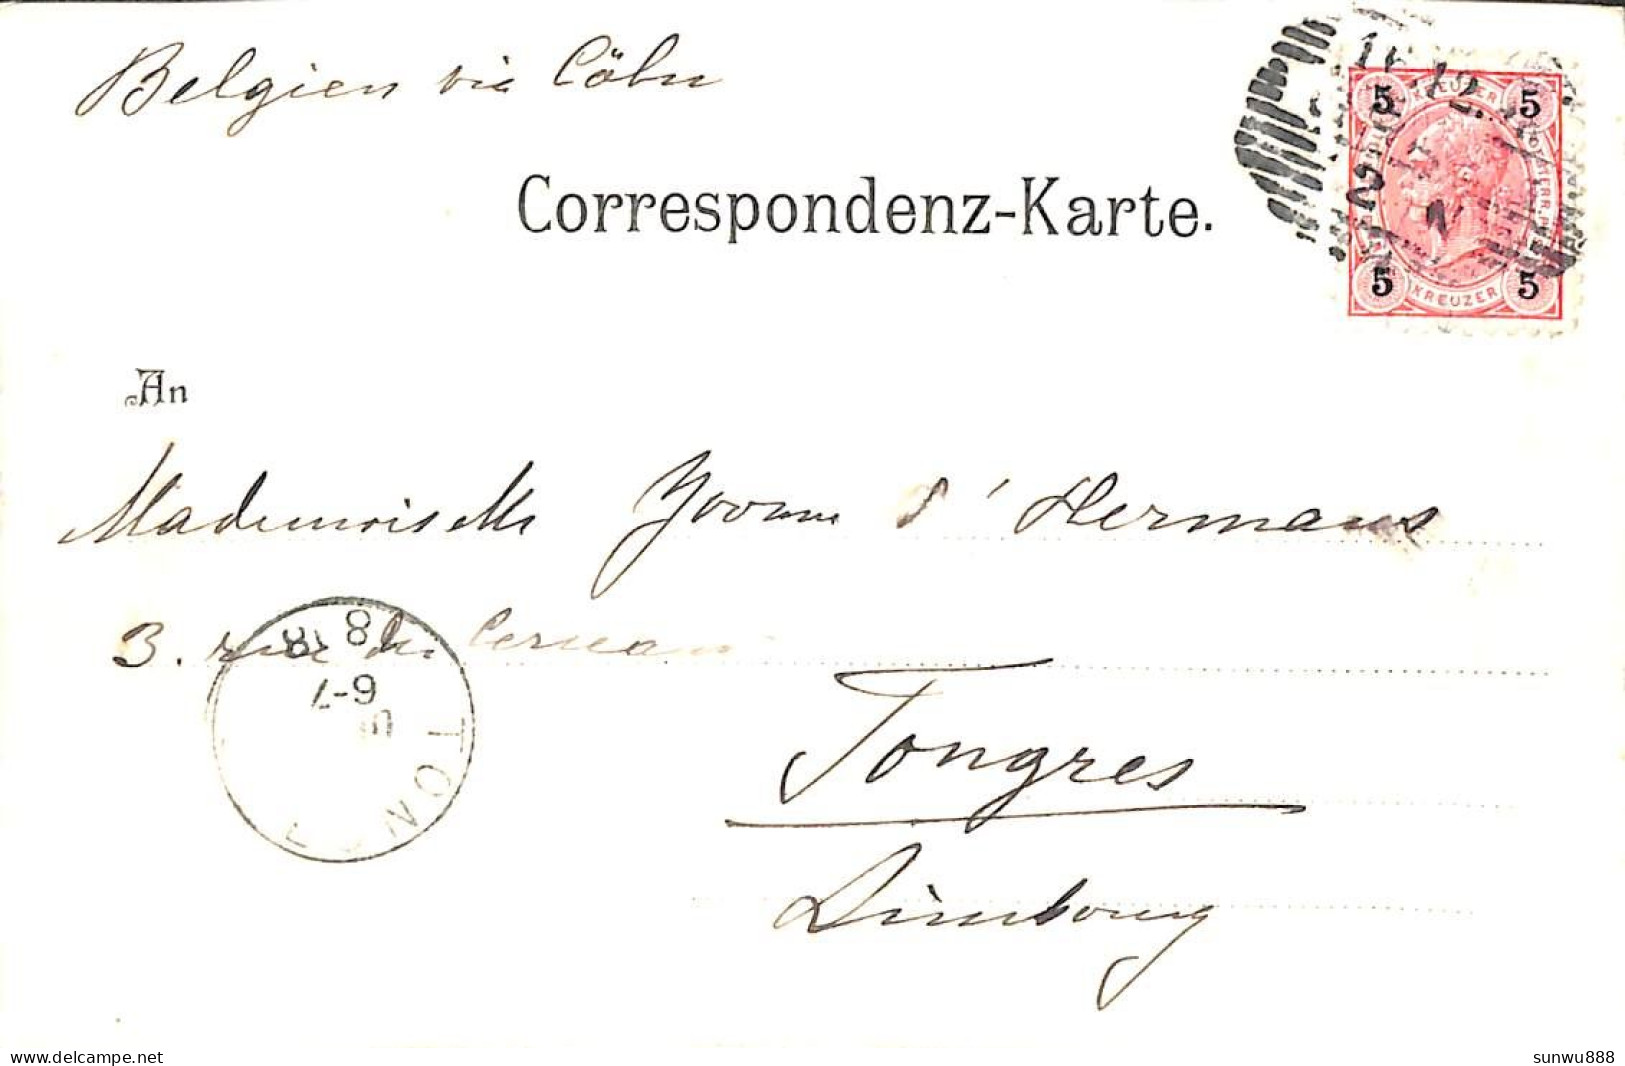 Belgien via Cöln
Correspondenz-Karte.
5 KREUZER 5
5 KREUZER 5
An
Mademoiselle Yvonne d'Hermans
3. rue du
18 8
6-7
S
TON
Tongres
Limbourg
www.delcampe.net
sunwu888